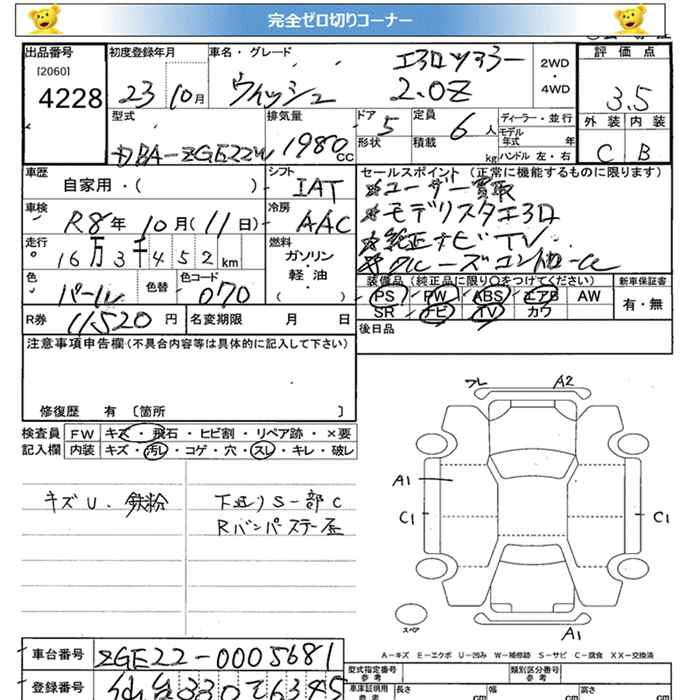 完全ゼロ切りコーナー
出品番号 初度登録年月 車名・グレード 評価点
[2060]
4228 23年10月 ウィッシュ エアロツアラー 2.0Z 2WD・4WD 3.5
型式 排気量 ドア 5 定員 6人 ディーラー・並行 外装 内装
DBA-ZGE22W 1980cc 形状 積載 kg モデル年式 年 ハンドル 左・右 C B
車歴 シフト セールスポイント(正常に機能するものに限ります)
自家用・( ) IAT ※ユーザー買取
車検 冷房 ※モデリスタエアロ
R8年10月(11日) AAC ※純正ナビTV
走行 燃料 ※クルーズコントロール
16万3千452km ガソリン 軽油 ( )
色 色替 色コード 装備品(純正品に限り○をつけてください) 新車保証書
パール 070 PS PW ABS エアB AW 有・無
SR ナビ TV カワ
R券 11520円 名変期限 月 日 後日品
注意事項申告欄(不具合内容等は具体的に記入して下さい)
修復歴 有 [箇所 ]
検査員 FW キズ・飛石・ヒビ割・リペア跡・×要
記入欄 内装 キズ・汚レ・コゲ・穴・スレ・キレ・破レ
キズU、鉄粉 下廻りS一部C
Rバンパステー歪
フレ A2
A1
C1 C1
スペア
A1
A-キズ E-エクボ U-凹み W-補修跡 S-サビ C-腐食 XX-交換済
車台番号 ZGE22-0005681 型式指定番号 参考 類別区分番号 参考
登録番号 仙台330 車庫証明用 参考 長さ cm 幅 cm 高さ cm